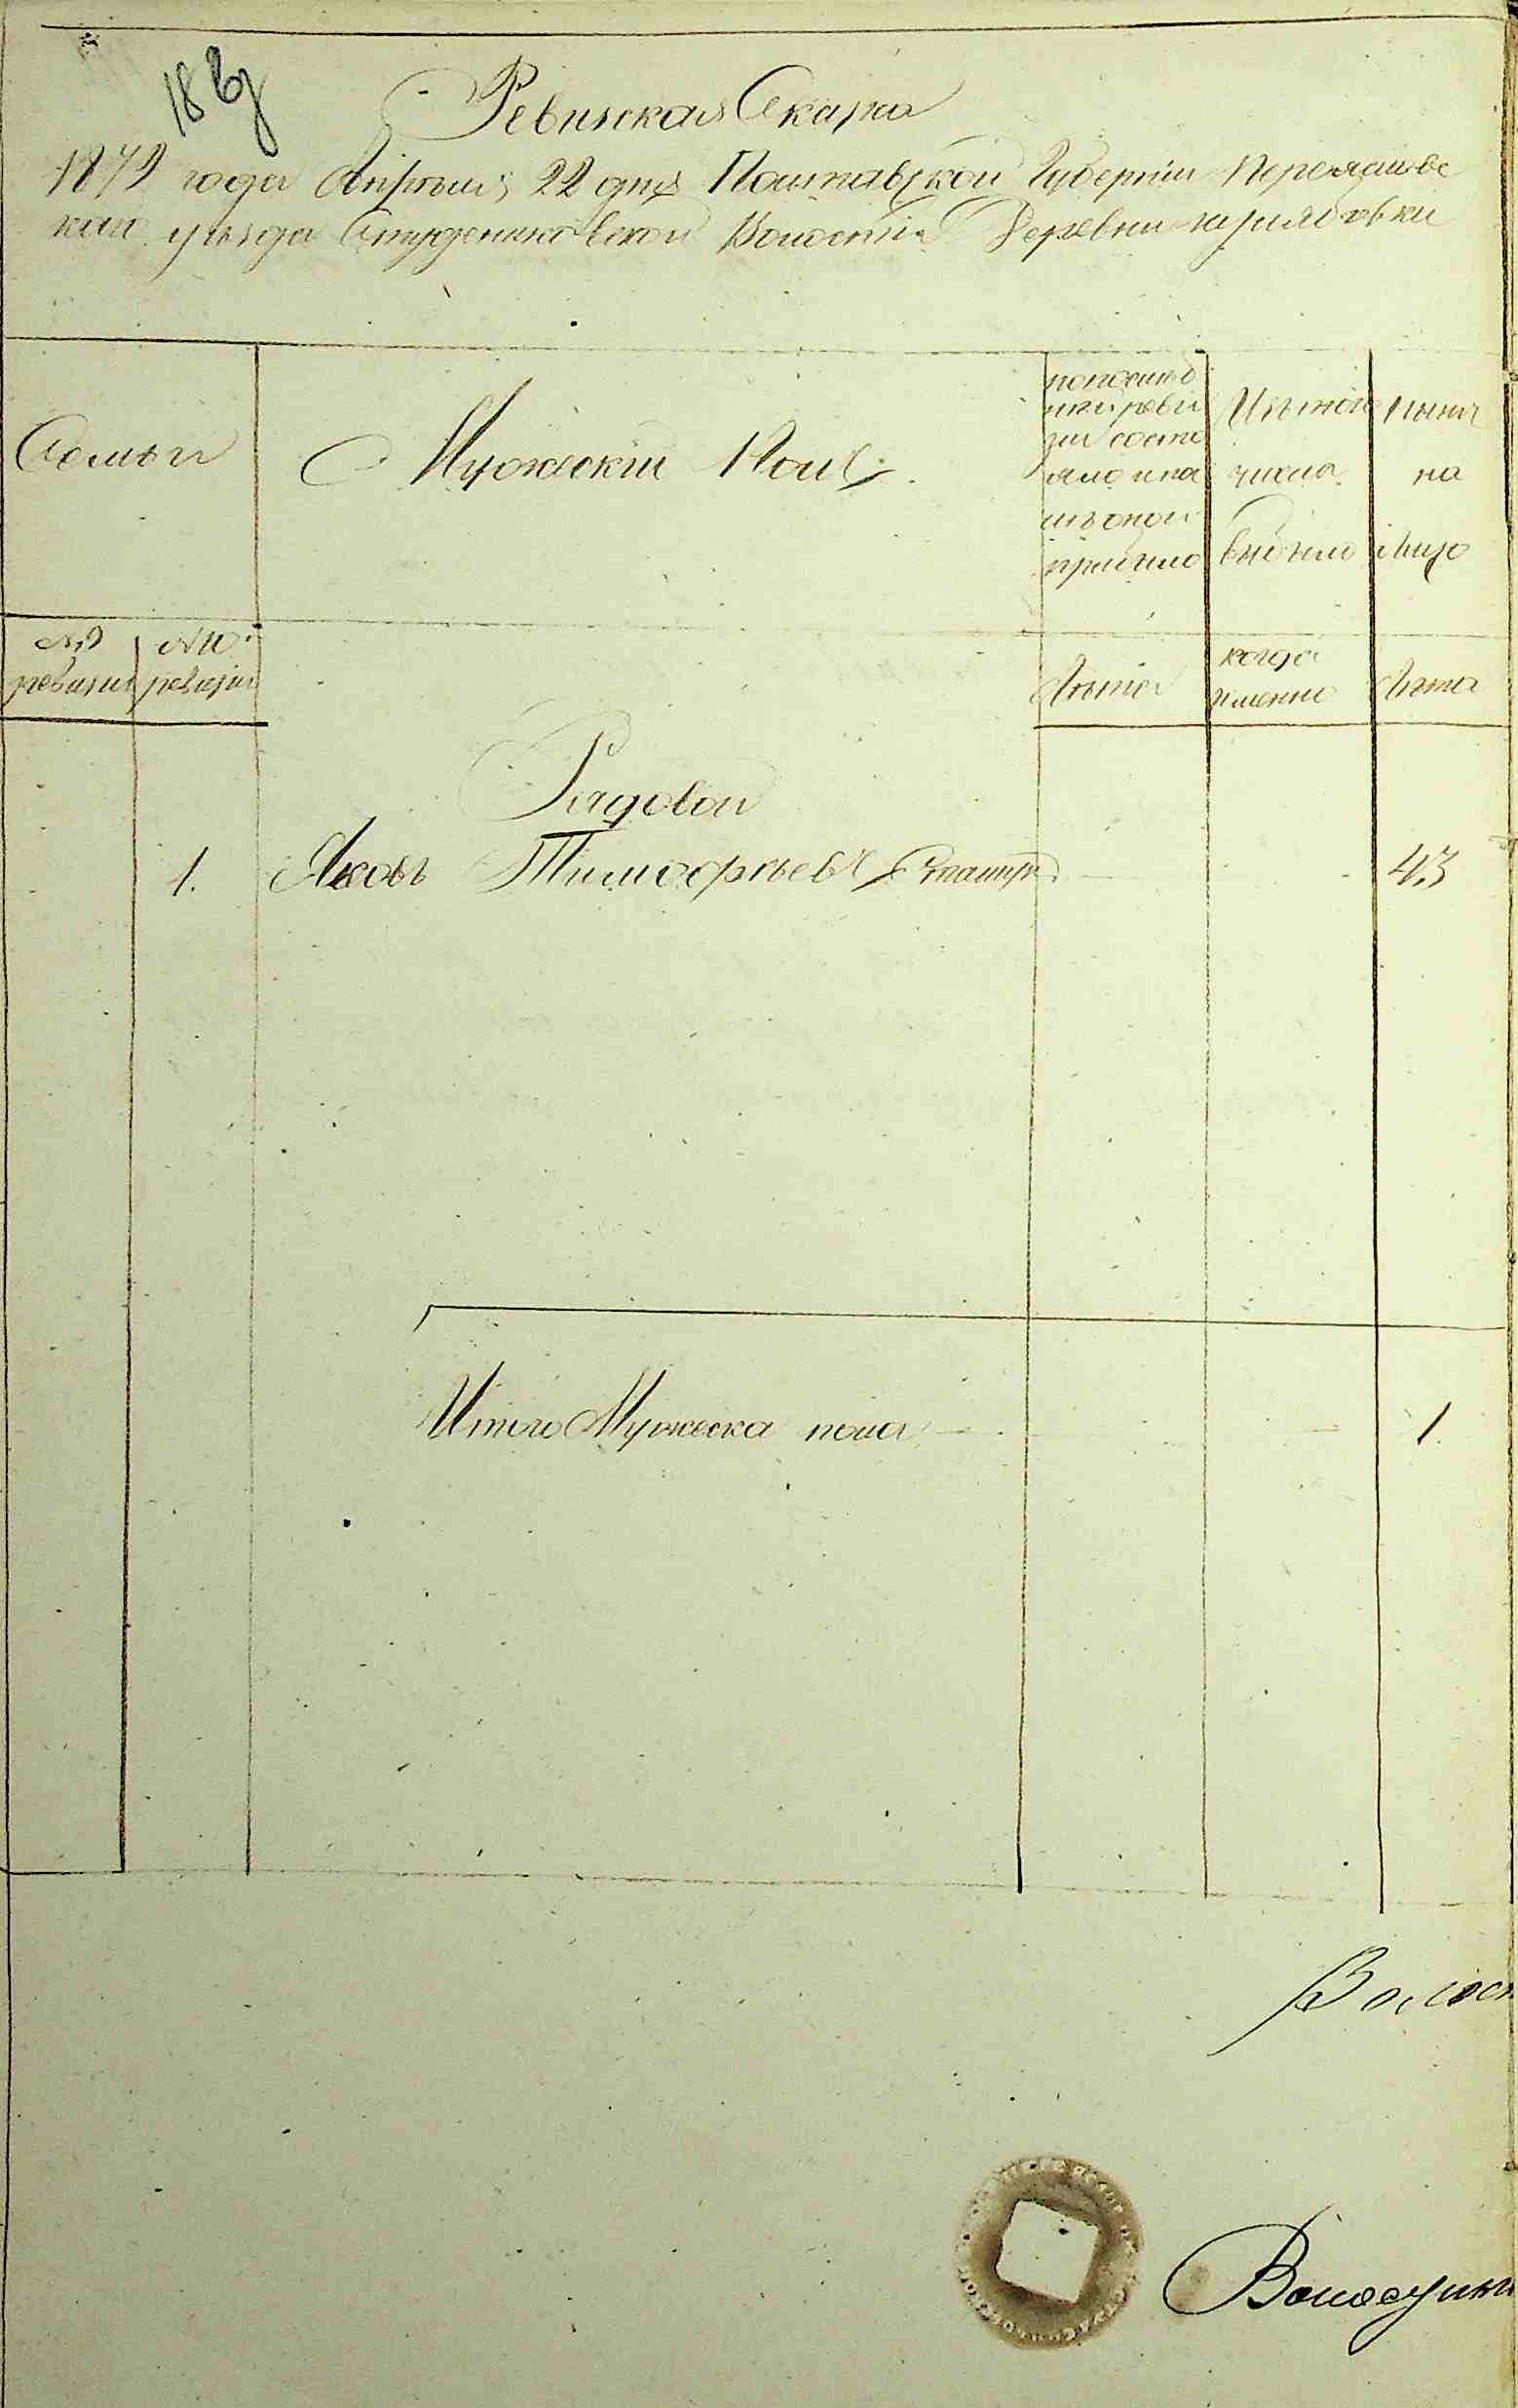 Ревизская Сказка
года Апреля 22 дня Полтавской Губернии Переяславс
каго уезда Студениковской Волости Деревни
Семьи
Мужескій Полъ
по послед
ней реви
зіи состо
яло и по
слѣ оной
прибыло
Изъ того
числа
выбыло
ныне
на
лицо
№
ревизіи
№
ревизіи
Лѣта
когда
именно
Лѣта
Рядовой
1. Яковъ Тимофѣевъ 43
Итого Мужеска пола 1.
Волост